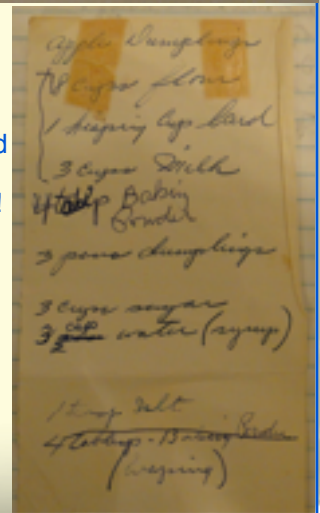 d
!
Apple Dumplings
8 cups flour
1 heaping cup Lard
3 cups Milk
4 Baking
Powder
3 pans dumplings
3 cups sugar
3 cup water (syrup)
1 Salt
4 - Baking Powder
(heaping)